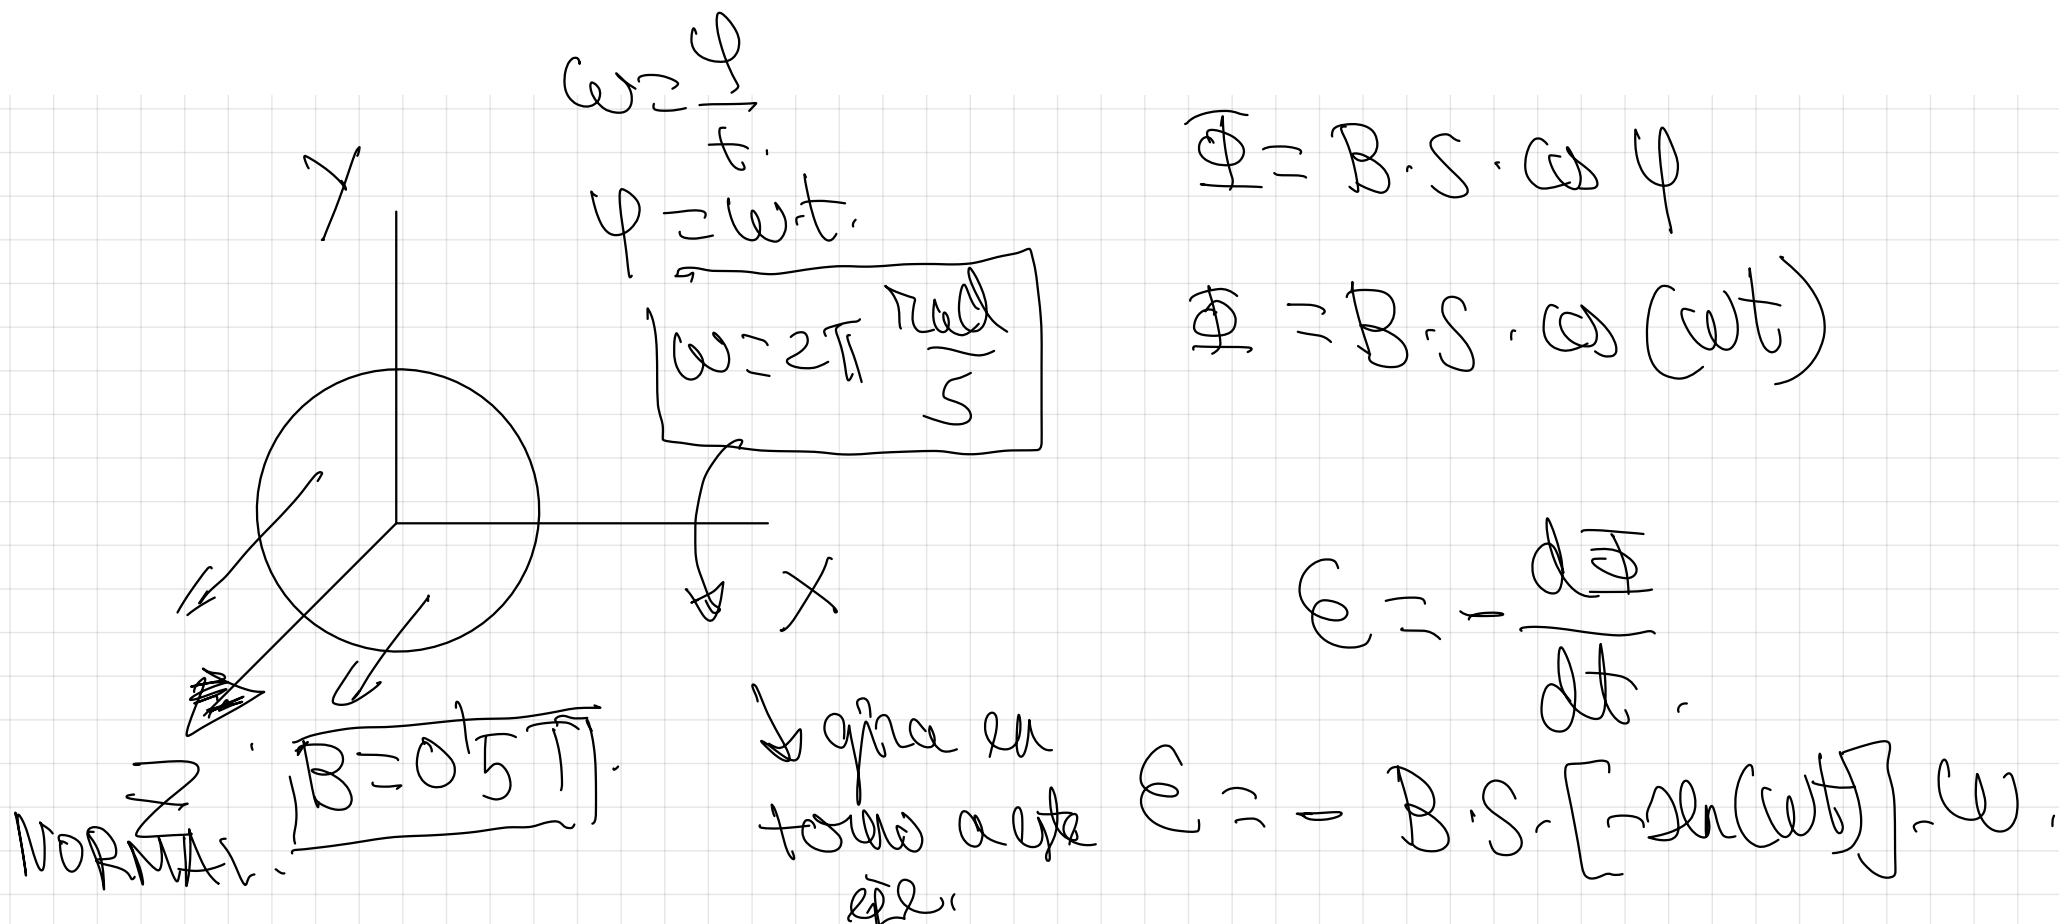 ω = φ/t.
φ = ω·t.
ω = 2π rad/s
Y
X
Z
NORMAL.
B = 0'5 T.
gira en
torno a este
eje.
Φ = B·S·cos φ
Φ = B·S·cos(ωt)
ε = - dΦ/dt.
ε = - B·S·[-sen(ωt)]·ω.